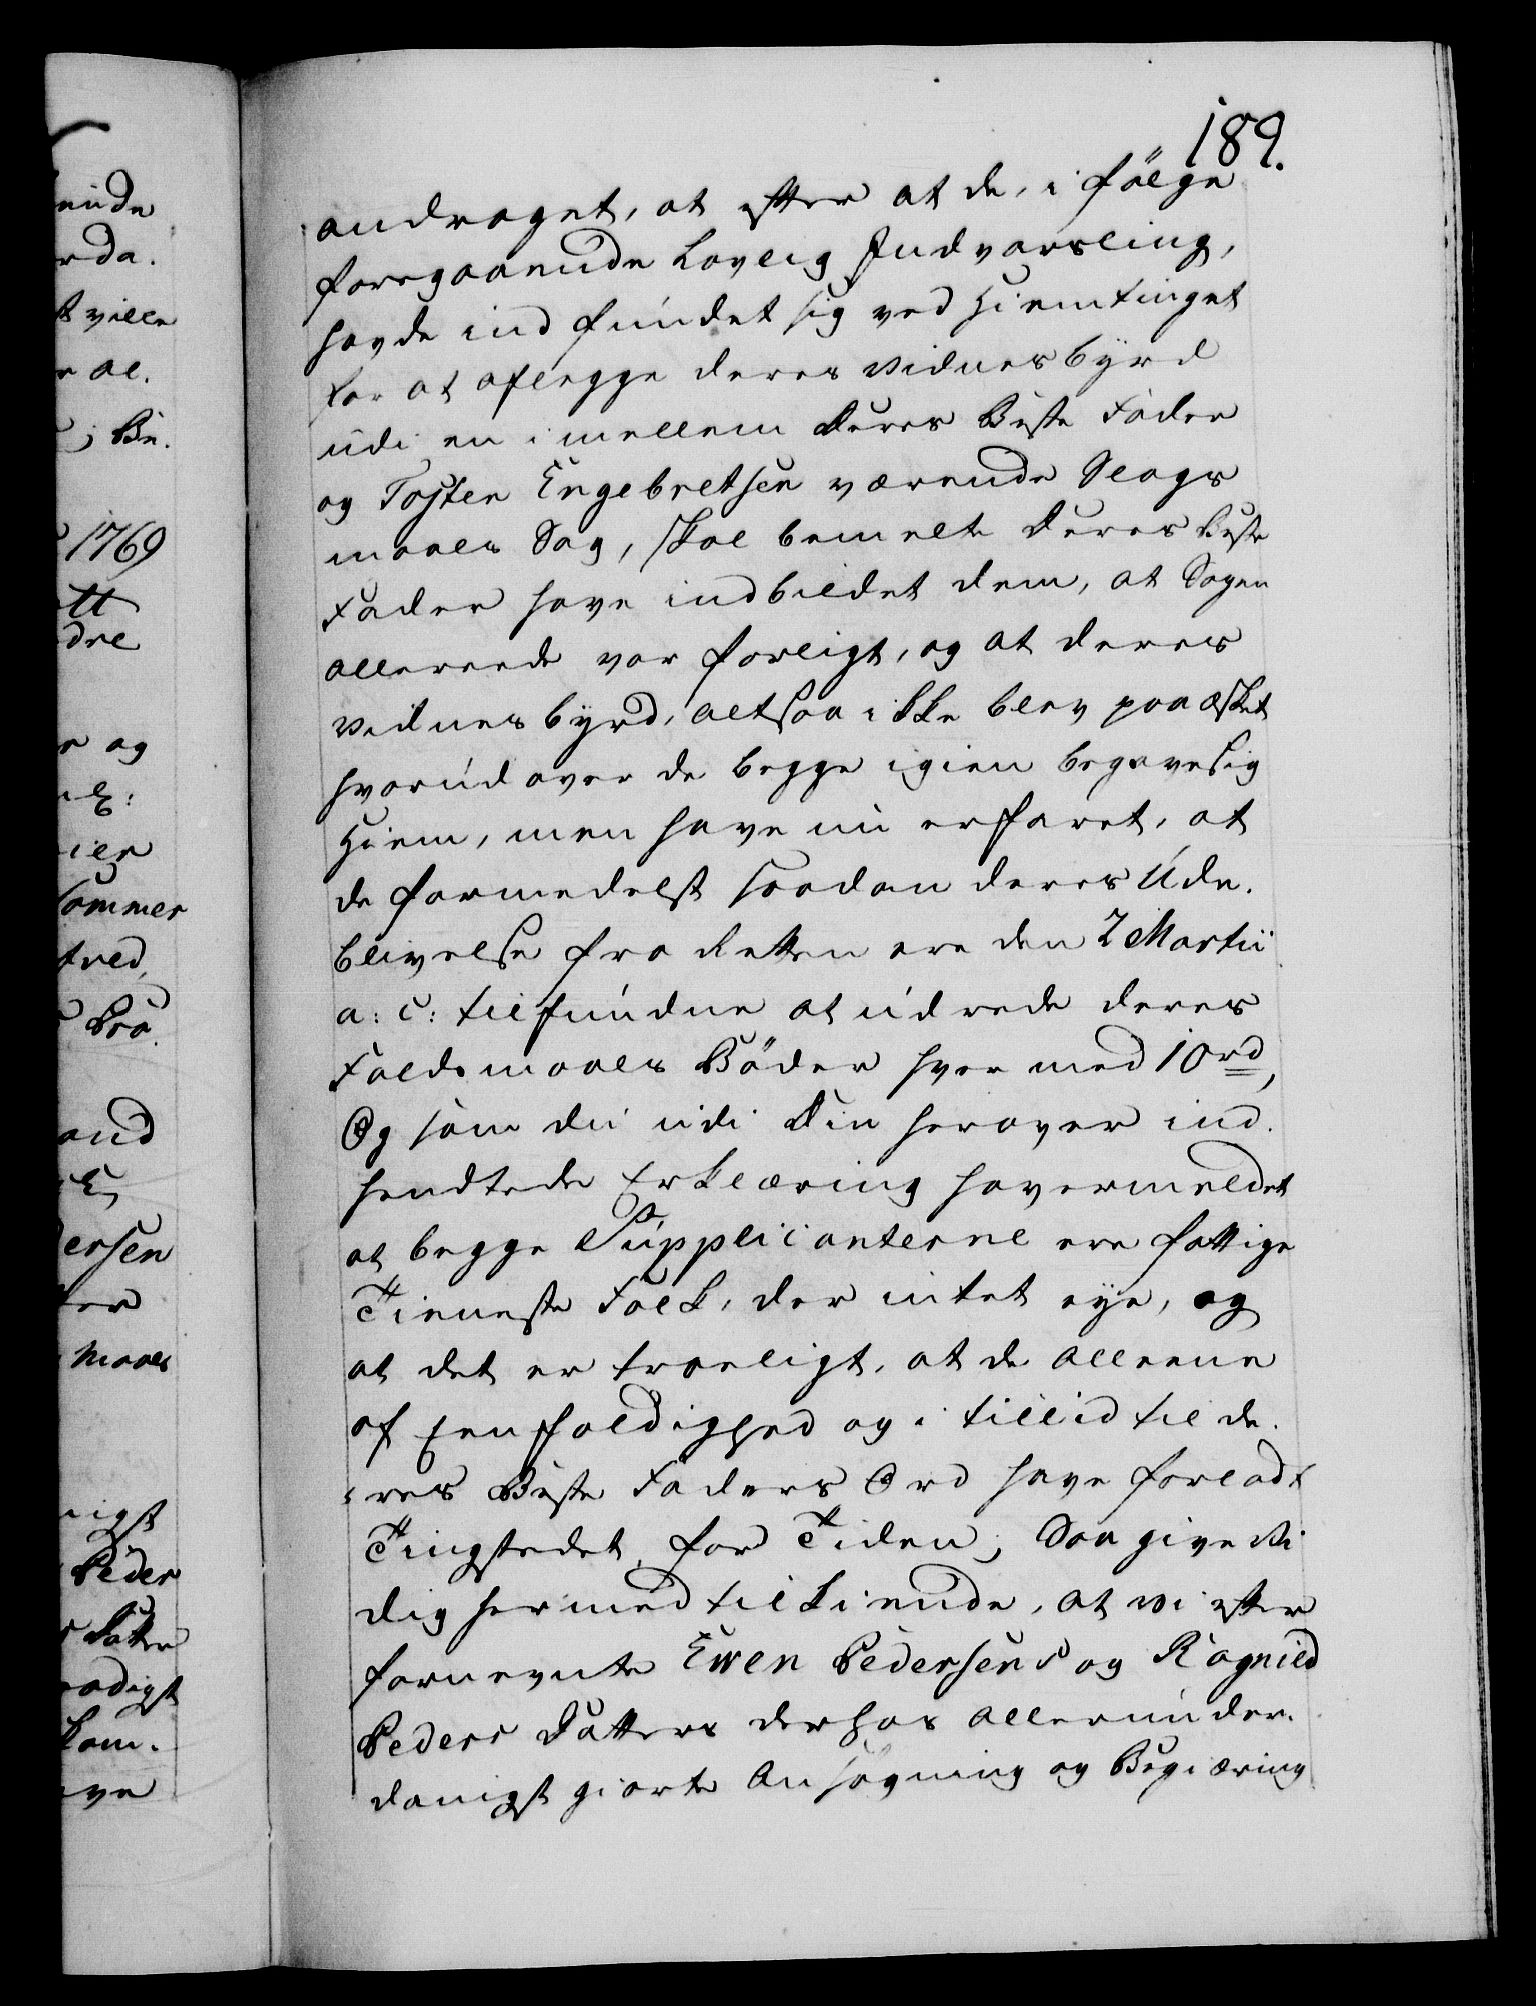 189.
andraget, at efter at de, i følge
foregaaende Lovlig Indvarsling,
havde ind fundet sig ved Hiemtinget
for at aflegge deres vidnesbyrd
udi en imellem deres Beste Fader
og Tosten Engebretsen værende Slags
maals Sag, skal bemelte deres Beste
Fader have indbildet dem, at Sagen
allereede var forligt, og at deres
vidnesbyrd, altsaa ikke blev paa æsket
hvorudover de begge igien begave sig
Hiem, men have nu erfaret, at
de formedelst saadan deres Ude.
blivelse fra Retten ere den 2 Martii
a: c: tilfundne at udrede deres
Faldsmaals Bøder hver med 10 rd,
Og som du udi Din herover ind.
sendtede Erklæring haver meldet
at begge Supplicanterne ere fattige
Tieneste Folk, der intet eye, og
at det er troeligt, at de alleene
af Eenfoldighed og i tillid til de.
res Beste Faders Ord have forladt
Tingstedet for Tiden; Saa give Vi
dig hermed tilkiende, at vi efter
fornevnte Ewen Pedersens og Ragnild
Peders Datters derhos allerunder.
danigst giorte Ansøgning og Begiæring
ende
rda.
t ville
r al.
; Be.
1769
ott
dre
r og
ier
Sommer
tred,
Broe.
and
ersen
ter
maals
nigst
Peder
Datter
aadigst
kom.
ave